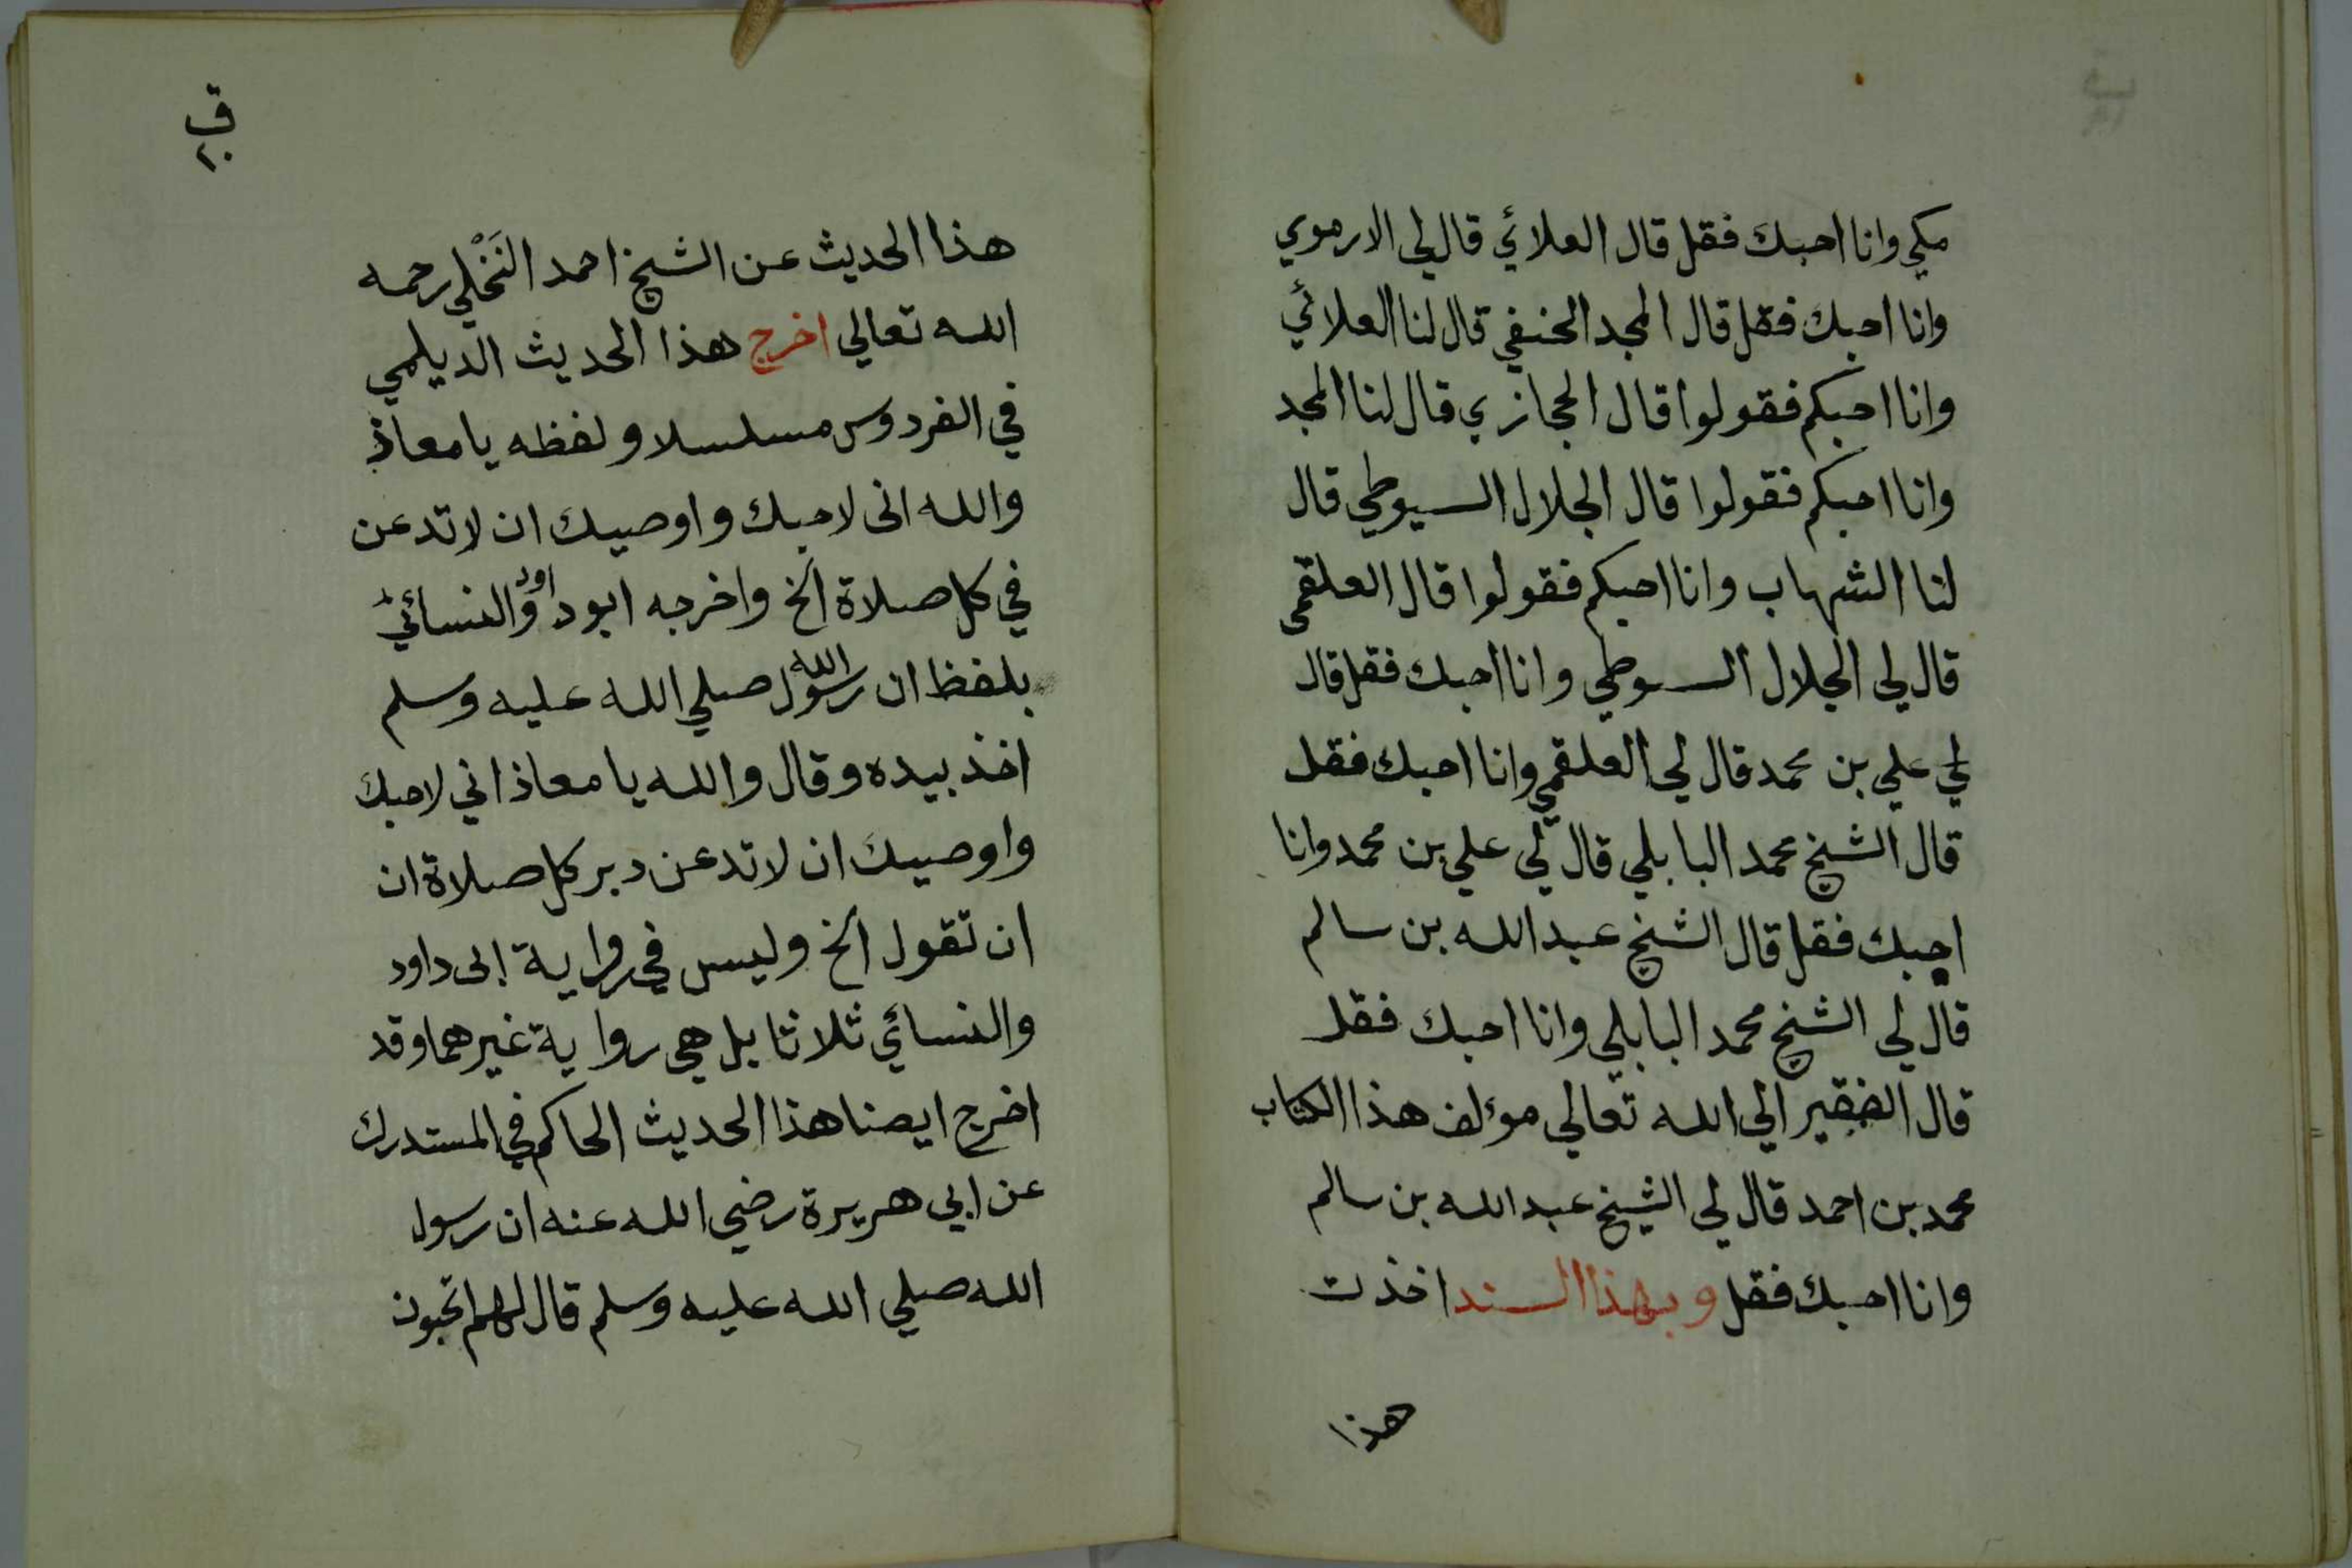 مكي وانا احبك فقل قال العلائي قال لي الارموي
وانا احبك فقل قال المجد الحنفي قال لنا العلائي
وانا احبكم فقولوا قال الحجازي قال لنا المجد
وانا احبكم فقولوا قال الجلال السيوطي قال
لنا الشهاب وانا احبكم فقولوا قال العلقمي
قال لي الجلال السوطي وانا احبك فقل قال
لي علي بن محمد قال لي العلقمي وانا احبك فقل
قال الشيخ محمد البابلي قال لي علي بن محمد وانا
احبك فقل قال الشيخ عبد الله بن سالم
قال لي الشيخ محمد البابلي وانا احبك فقل
قال الفقير الي الله تعالي مؤلف هذا الكتاب
محمد بن احمد قال لي الشيخ عبد الله بن سالم
وانا احبك فقل وبهذا السند اخذت
هذا
ف
٢٠
هذا الحديث عن الشيخ احمد النَخْلي رحمه
الله تعالي اخرج هذا الحديث الديلمي
في الفردوس مسلسلا ولفظه يا معاذ
والله انى لاحبك واوصيك ان لا تدعن
في كل صلاة الخ واخرجه ابو داوود والنسائي
بلفظ ان رسول الله صلي الله عليه وسلم
اخذ بيده وقال والله يا معاذ اني لاحبك
واوصيك ان لا تدعن دبر كل صلاة ان
ان تقول الخ وليس في رواية ابى داود
والنسائي ثلاثا بل هي رواية غيرهما وقد
اخرج ايضا هذا الحديث الحاكم في المستدرك
عن ابي هريرة رضي الله عنه ان رسول
الله صلي الله عليه وسلم قال لهم اتحبون